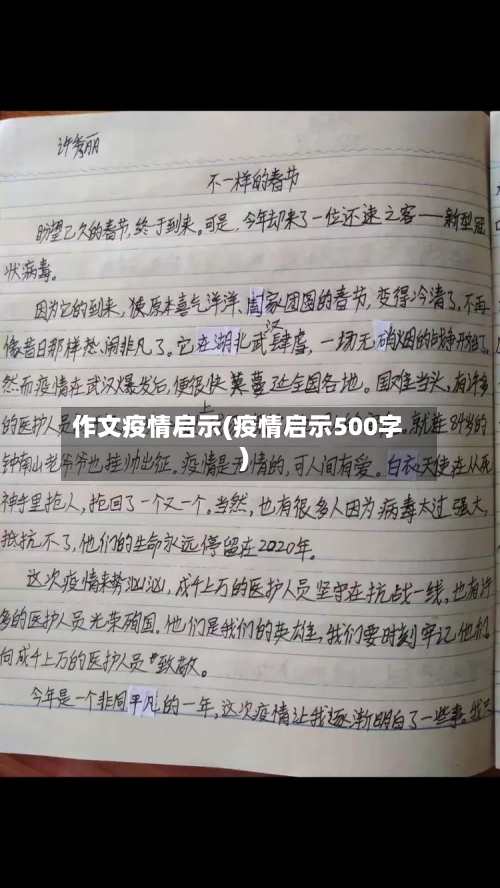 许秀丽
不一样的春节
盼望已久的春节,终于到来。可是,今年却来了一位还速之客——新型冠
状病毒。
因为它的到来,使原本喜气洋洋、阖家团圆的春节,变得冷清了,不再
像昔日那样热闹非凡了。它在湖北武汉肆虐,一场无硝烟的战争开始了。
然而疫情在武汉爆发后,便很快蔓延全国各地。国难当头,有许多
的医护人员
就连84岁的
作文疫情启示(疫情启示500字
)
钟南山老爷爷也挂帅出征。疫情是无情的,可人间有爱。白衣天使在从死
神手里抢人,抢回了一个又一个。当然,也有很多人因为病毒太过强大,
抵抗不了,他们的生命永远停留在2020年。
这次疫情来势汹汹,成千上万的医护人员坚守在抗战一线,也有许
多的医护人员光荣殉国。他们是我们的英雄,我们要时刻牢记他们,
向成千上万的医护人员致敬。
今年是一个非同平凡的一年,这次疫情让我逐渐明白了一些事。我